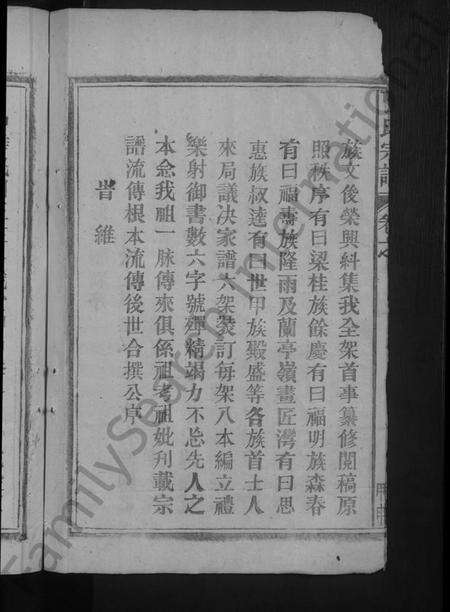 氏宗譜 卷之
族文後榮興糾集我全架首事纂修閱稿原
照秩序有曰梁桂族餘慶有曰福明族森春
有曰福壽族隆雨及蘭亭嶺畫匠灣有曰思
惠族叔達有曰世甲族殿盛等各族首士人
來局議决家譜六架裝訂每架八本編立禮
樂射御書數六字號殫精竭力不忘先人之
本念我祖一脉傳來俱係祖考祖妣刋載宗
譜流傳根本流傳後世合撰公序
昔維
FamilySearch International